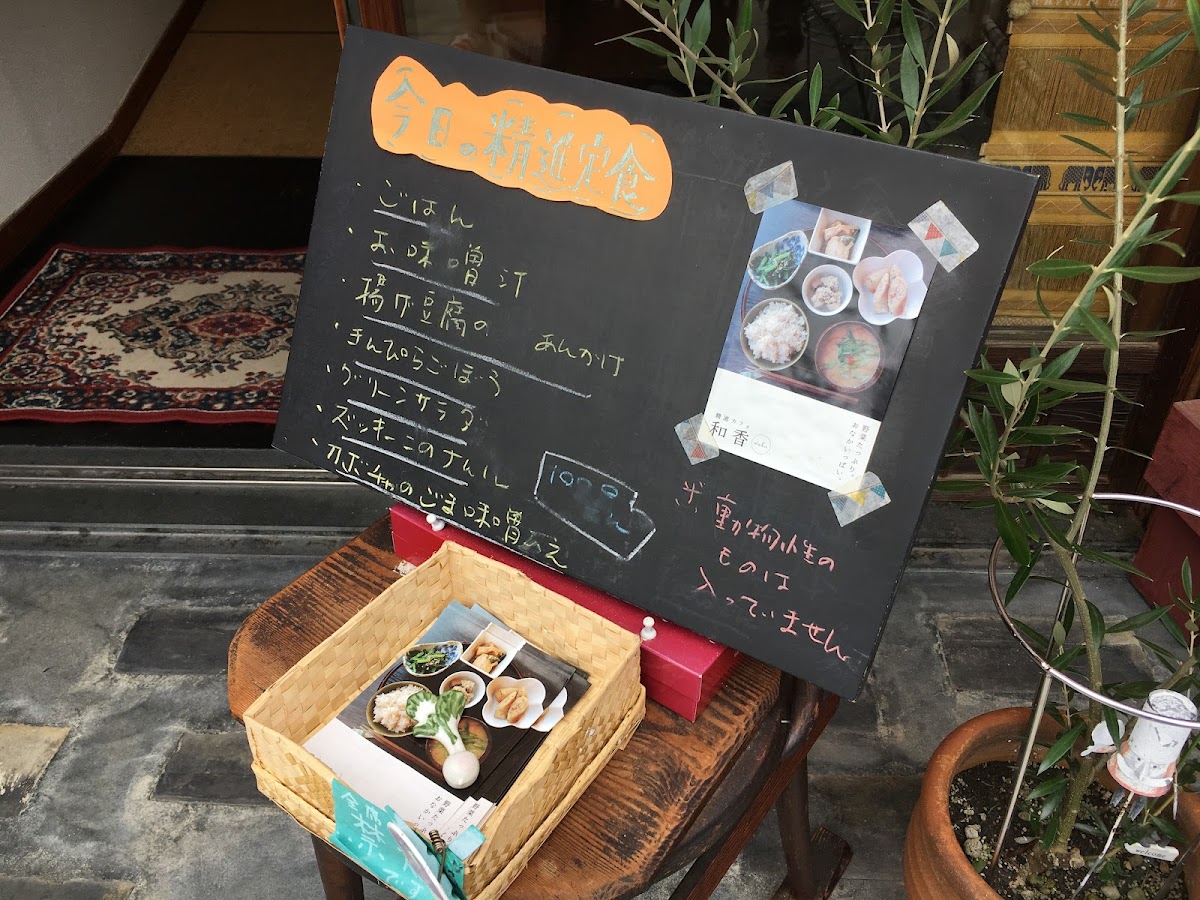 今日の精進定食
・ごはん
・お味噌汁
・揚げ豆腐の あんかけ
・きんぴらごぼう
・グリーンサラダ
・ズッキーニのナムル
・カボチャのごま味噌あえ
1000
※動物性の
ものは
入っていません
野菜たっぷり、
おなかいっぱい。
精進カフェ
和香
野菜たっぷり
おなかいっ
全席禁
welcome